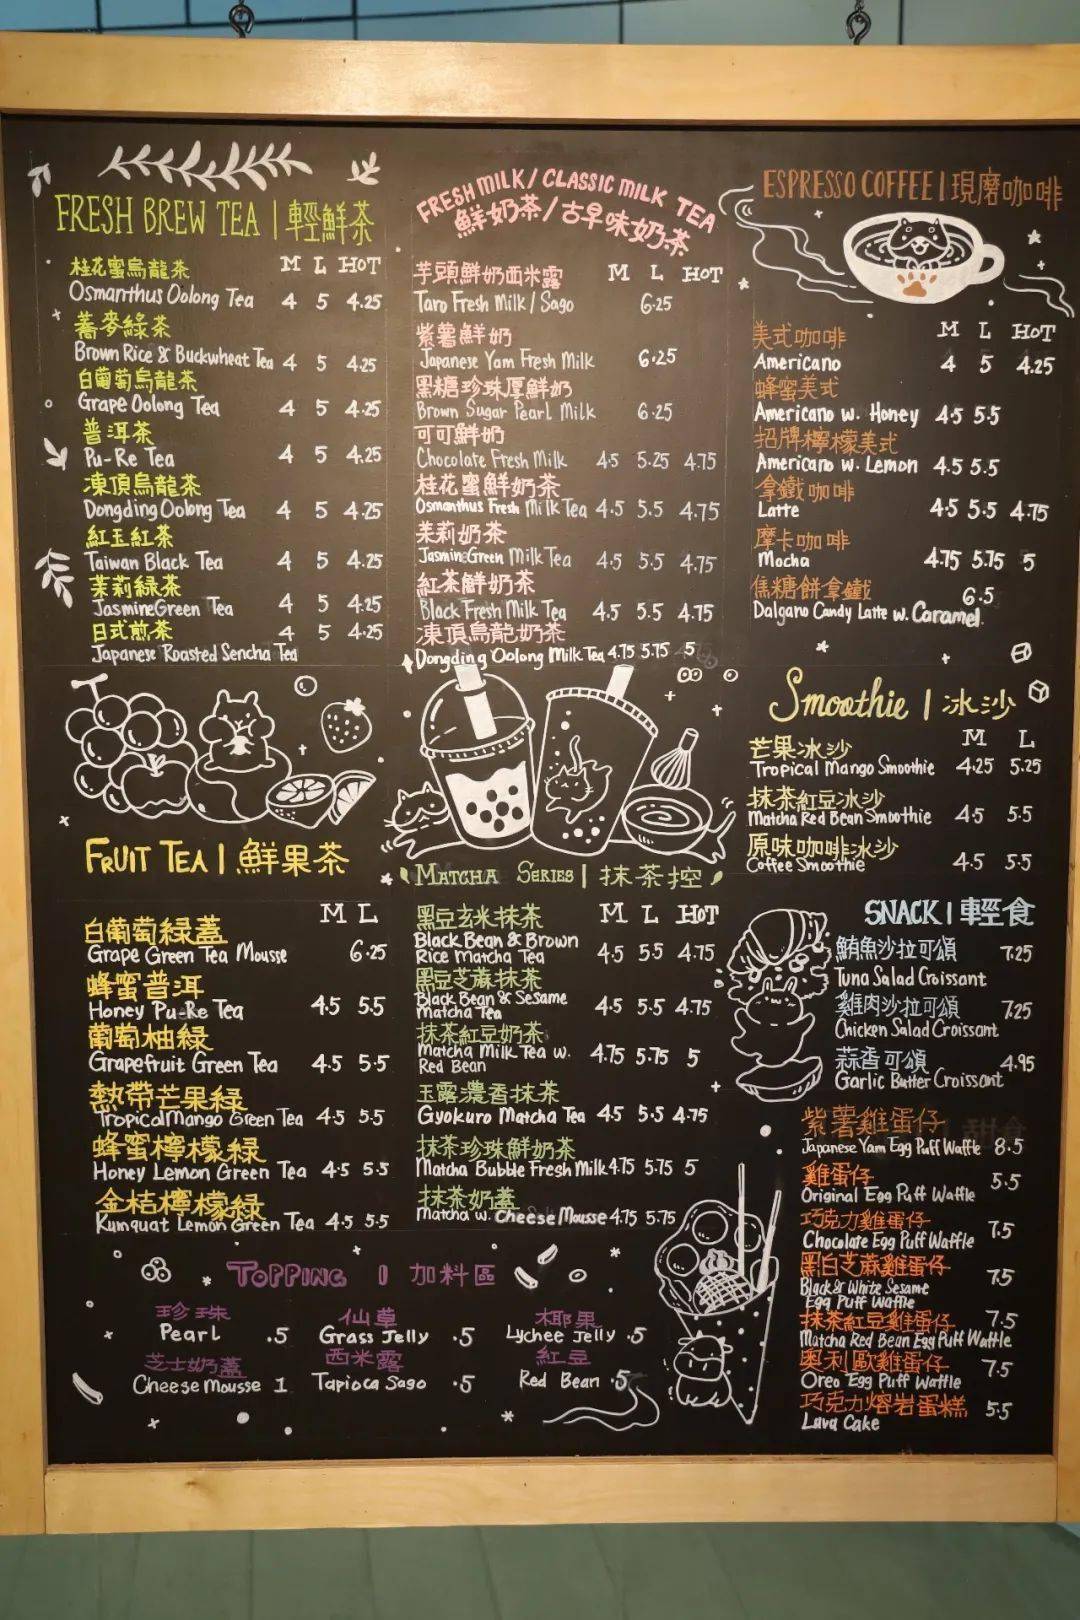 FRESH BREW TEA | 輕鮮茶
M L HOT
桂花蜜烏龍茶
Osmanthus Oolong Tea 4 5 4.25
蕎麥綠茶
Brown Rice & Buckwheat Tea 4 5 4.25
白葡萄烏龍茶
Grape Oolong Tea 4 5 4.25
普洱茶
Pu-Re Tea 4 5 4.25
凍頂烏龍茶
Dongding Oolong Tea 4 5 4.25
紅玉紅茶
Taiwan Black Tea 4 5 4.25
茉莉綠茶
Jasmine Green Tea 4 5 4.25
日式煎茶 4 5 4.25
Japanese Roasted Sencha Tea
FRESH MILK / CLASSIC MILK TEA
鮮奶茶/古早味奶茶
芋頭鮮奶西米露 M L HOT
Taro Fresh Milk / Sago 6.25
紫薯鮮奶
Japanese Yam Fresh Milk 6.25
黑糖珍珠厚鮮奶
Brown Sugar Pearl Milk 6.25
可可鮮奶
Chocolate Fresh Milk 4.5 5.25 4.75
桂花蜜鮮奶茶
Osmanthus Fresh Milk Tea 4.5 5.5 4.75
茉莉奶茶
Jasmine Green Milk Tea 4.5 5.5 4.75
紅茶鮮奶茶
Black Fresh Milk Tea 4.5 5.5 4.75
凍頂烏龍奶茶
Dongding Oolong Milk Tea 4.75 5.75 5
ESPRESSO COFFEE | 現磨咖啡
美式咖啡 M L HOT
Americano 4 5 4.25
蜂蜜美式
Americano w. Honey 4.5 5.5
招牌檸檬美式
Americano w. Lemon 4.5 5.5
拿鐵咖啡
Latte 4.5 5.5 4.75
摩卡咖啡
Mocha 4.75 5.75 5
焦糖餅拿鐵 6.5
Dalgano Candy Latte w. Caramel.
Smoothie | 冰沙
芒果冰沙 M L
Tropical Mango Smoothie 4.25 5.25
抹茶紅豆冰沙
Matcha Red Bean Smoothie 4.5 5.5
原味咖啡冰沙
Coffee Smoothie 4.5 5.5
FRUIT TEA | 鮮果茶
M L
白葡萄綠蓋
Grape Green Tea Mousse 6.25
蜂蜜普洱
Honey Pu-Re Tea 4.5 5.5
葡萄柚綠
Grapefruit Green Tea 4.5 5.5
熱帶芒果綠
Tropical Mango Green Tea 4.5 5.5
蜂蜜檸檬綠
Honey Lemon Green Tea 4.5 5.5
金桔檸檬綠
Kumquat Lemon Green Tea 4.5 5.5
MATCHA SERIES | 抹茶控
黑豆玄米抹茶 M L HOT
Black Bean & Brown
Rice Matcha Tea 4.5 5.5 4.75
黑豆芝蔴抹茶
Black Bean & Sesame
Matcha Tea 4.5 5.5 4.75
抹茶紅豆奶茶
Matcha Milk Tea w.
Red Bean 4.75 5.75 5
玉露濃香抹茶
Gyokuro Matcha Tea 4.5 5.5 4.75
抹茶珍珠鮮奶茶
Matcha Bubble Fresh Milk 4.75 5.75 5
抹茶奶蓋
Matcha w. Cheese Mousse 4.75 5.75
SNACK | 輕食
鮪魚沙拉可頌 7.25
Tuna Salad Croissant
雞肉沙拉可頌 7.25
Chicken Salad Croissant
蒜香可頌 4.95
Garlic Butter Croissant
紫薯雞蛋仔
Japanese Yam Egg Puff Waffle 8.5
雞蛋仔
Original Egg Puff Waffle 5.5
巧克力雞蛋仔
Chocolate Egg Puff Waffle 7.5
黑白芝蔴雞蛋仔
Black & White Sesame
Egg Puff Waffle 7.5
抹茶紅豆雞蛋仔 7.5
Matcha Red Bean Egg Puff Waffle
奧利歐雞蛋仔
Oreo Egg Puff Waffle 7.5
巧克力熔岩蛋糕
Lava Cake 5.5
TOPPING | 加料區
珍珠 仙草 椰果
Pearl .5 Grass Jelly .5 Lychee Jelly .5
芝士奶蓋 西米露 紅豆
Cheese Mousse 1 Tapioca Sago .5 Red Bean .5